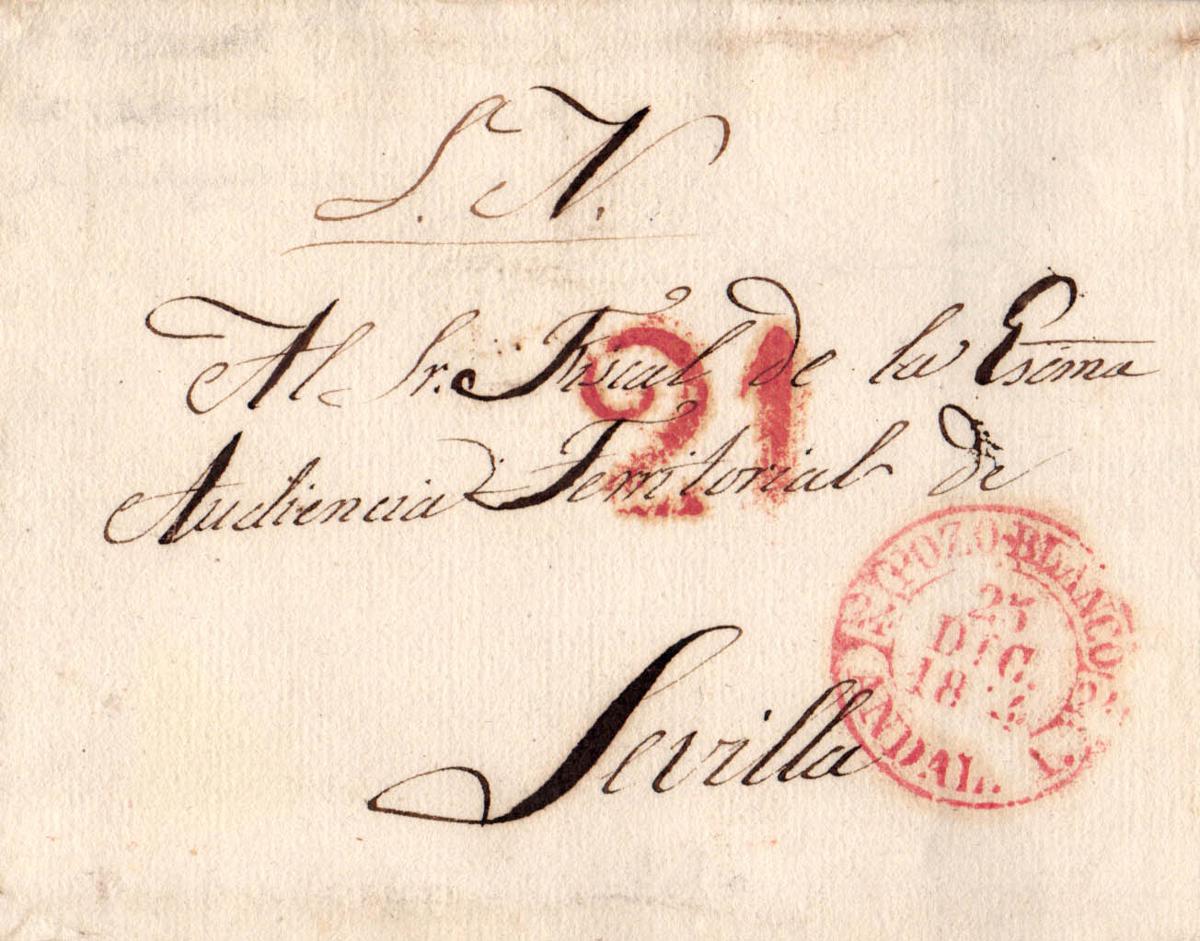 S. N.
Al Sr. Fiscal de la Escma
21
Audiencia Territorial de
Sevilla
POZO-BLANCO
25
DIC.
ANDAL.